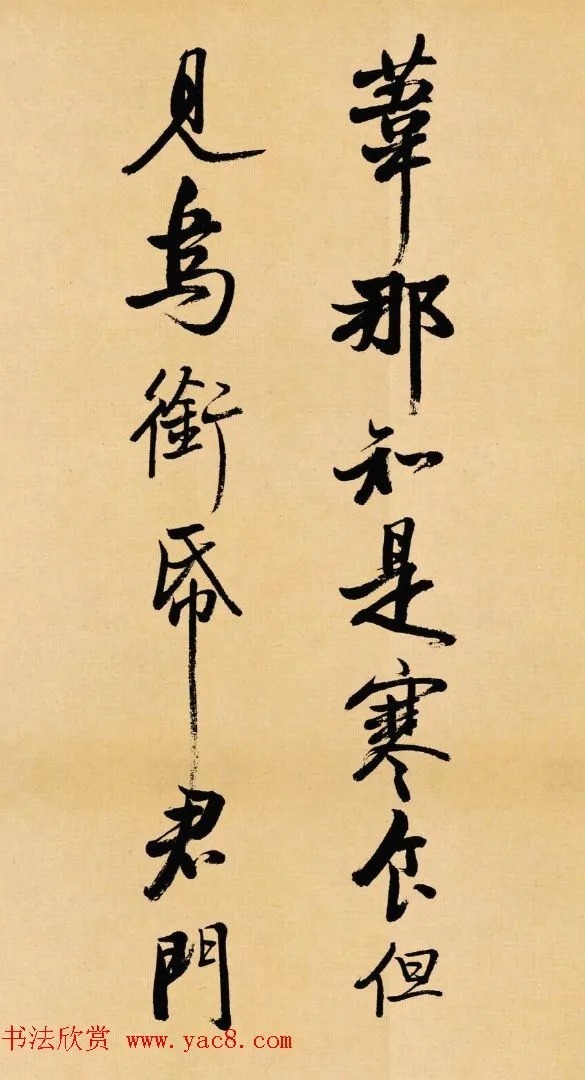 葦那知是寒食但
見烏銜帋君門
书法欣赏 www.yac8.com